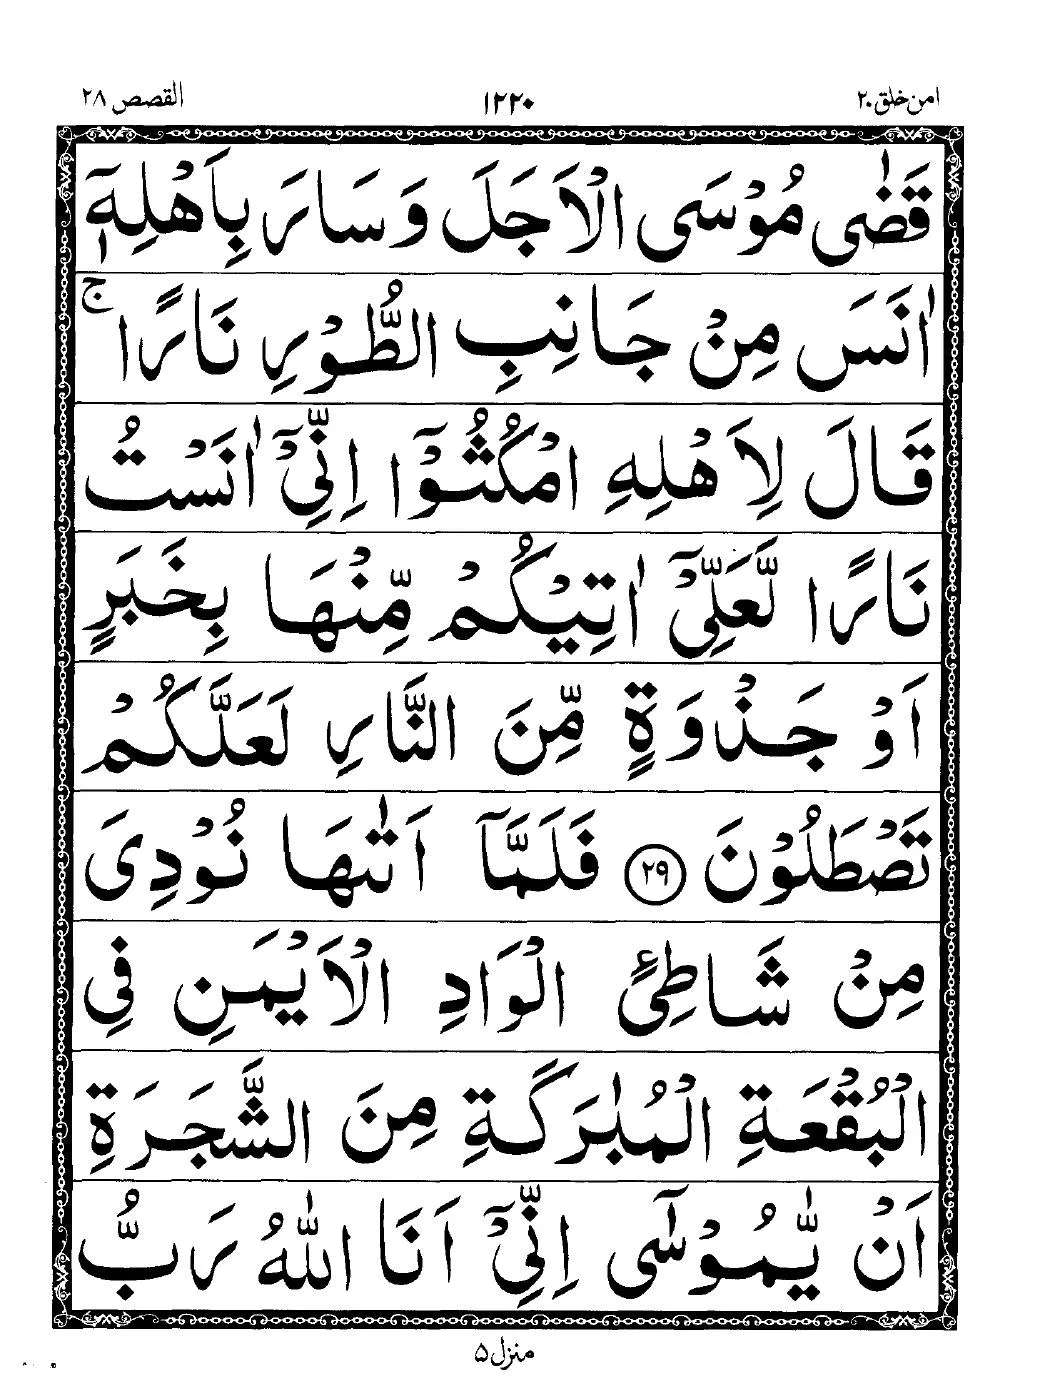 امن خلق ٢٠ ١٢٢٠ القصص ٢٨
قَضٰى مُوْسَى الْاَجَلَ وَسَارَ بِاَهْلِهٖۤ
اٰنَسَ مِنْ جَانِبِ الطُّوْرِ نَارًا ۚ
قَالَ لِاَهْلِهِ امْكُثُوْۤا اِنِّیْۤ اٰنَسْتُ
نَارًا لَّعَلِّیْۤ اٰتِیْكُمْ مِّنْهَا بِخَبَرٍ
اَوْ جَذْوَةٍ مِّنَ النَّارِ لَعَلَّكُمْ
تَصْطَلُوْنَ ٢٩ فَلَمَّاۤ اَتٰىهَا نُوْدِیَ
مِنْ شَاطِئِ الْوَادِ الْاَیْمَنِ فِی
الْبُقْعَةِ الْمُبٰرَكَةِ مِنَ الشَّجَرَةِ
اَنْ یّٰمُوْسٰۤى اِنِّیْۤ اَنَا اللّٰهُ رَبُّ
منزل ٥